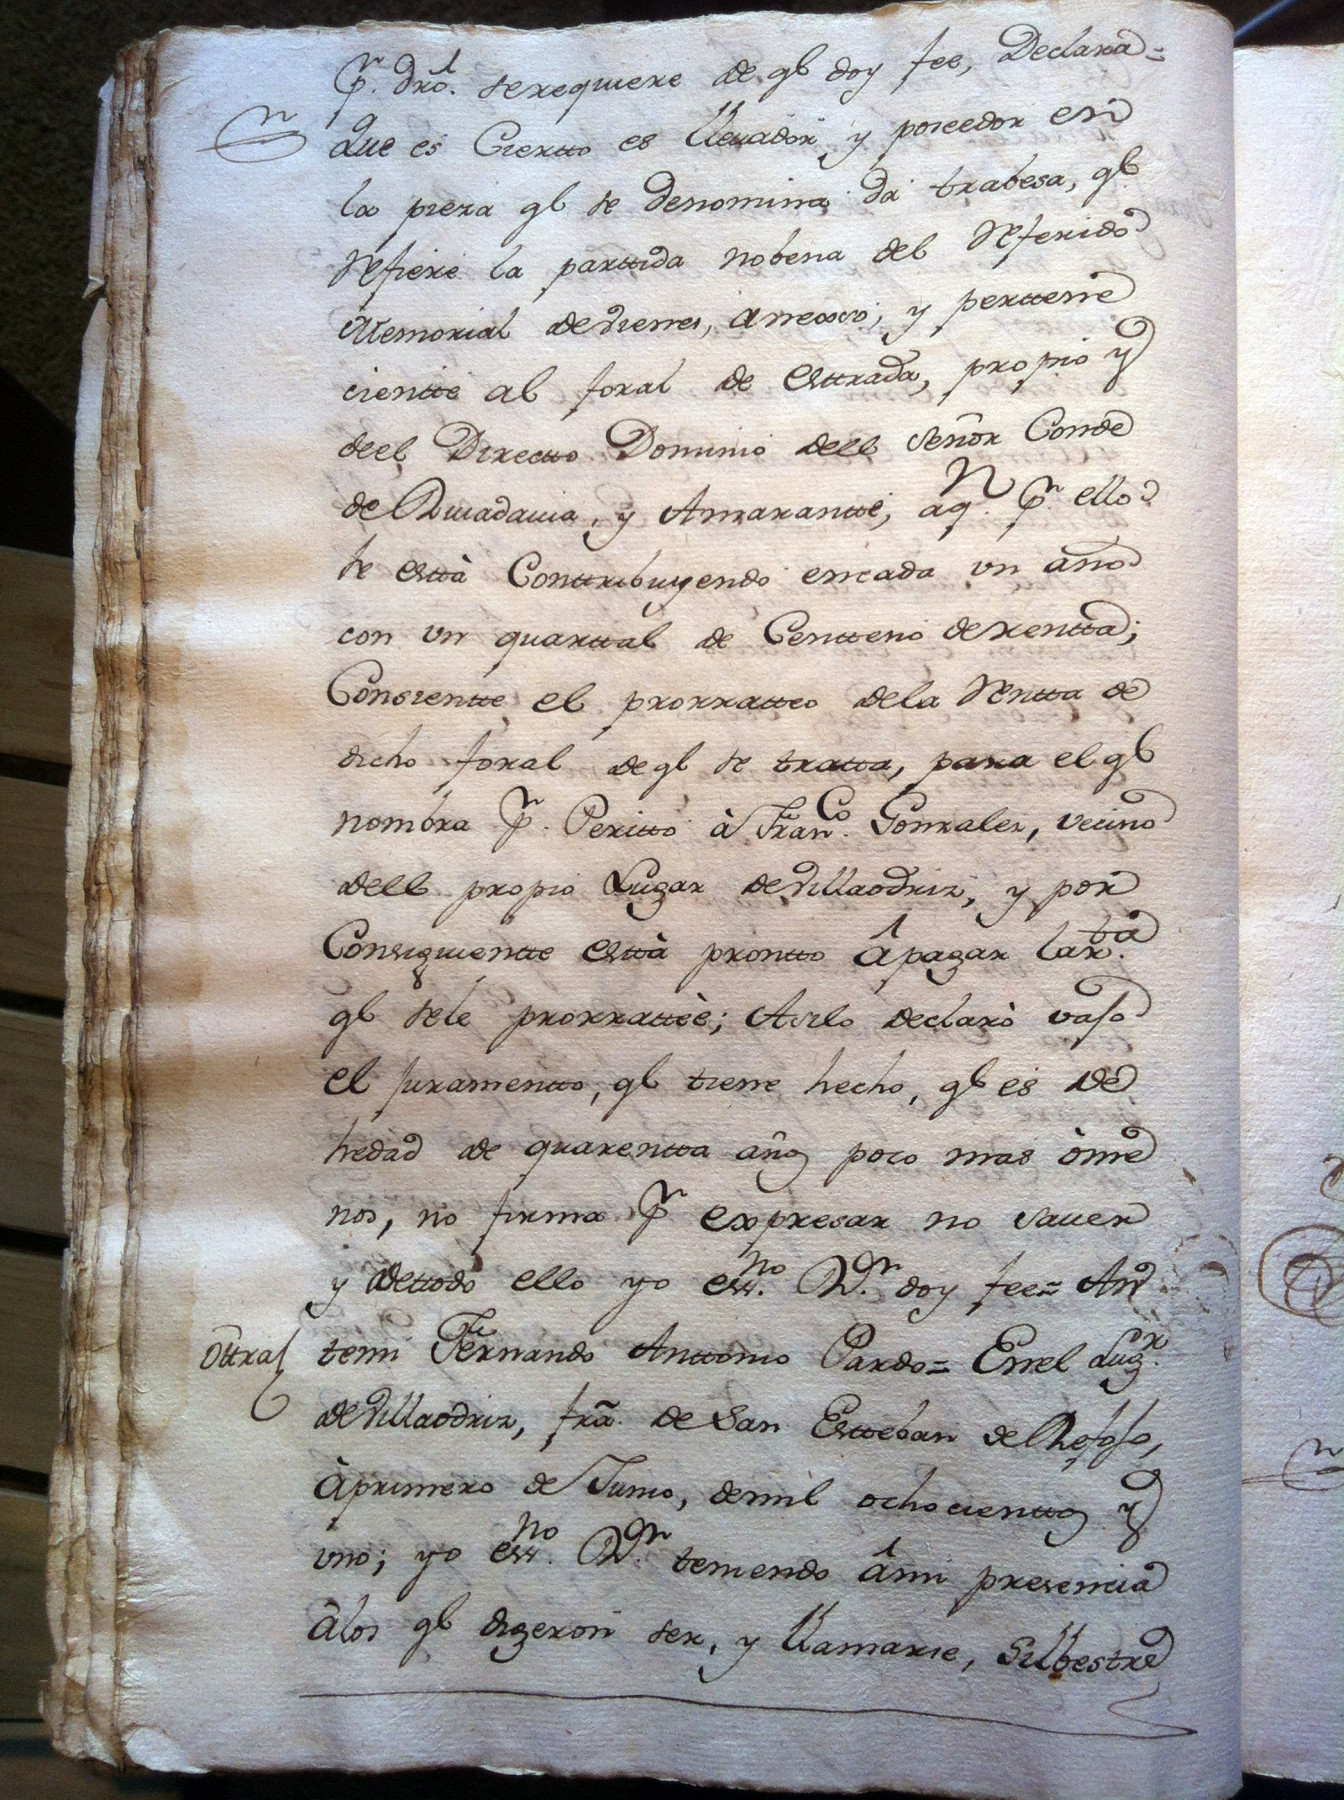 Pr. dro. se requiere de qe doy fee, Declara=
Que es Ciertto es llevador, y poseedor en
la pieza qe se denomina da trabesa, qe
Refiere la parttida nobena del Referido
Memorial de vienes, anexado, y perttene
ciente al foral de Esttrada, propio y
deel Directto Dominio dell Señor Conde
de Rivadavia, y Amarantte, aqn. pr. ello
se esttà Conttribuyendo en cada un año
con un quarttal de Centteno de rentta;
Consientte el prorratteo de la Rentta de
dicho foral de qe se tratta, para el qe
nombra pr. Peritto à Franco. Gonzalez, vecino
dell propio Lugar de Villaodriz, y por
Consiguientte esttà prontto â pagar la rta.
qe se le prorrattèè; Asi lo declarò vajo
el juramentto, qe tiene hecho, qe es de
hedad de quarentta años poco mas òme
nos, no firma pr. expresar no saver
y de ttodo ello yo essno. Rr. doy fee= An
temi Fernando Anttonio Pardo= En el Lugr.
Ottra
de Villaodriz, fra. de San Estteban de Refojo,
à primero de Junio, de mil ochocienttos y
uno; yo essno. Rr. teniendo â mi presencia
â los qe digeron ser, y llamarse, Silbestre